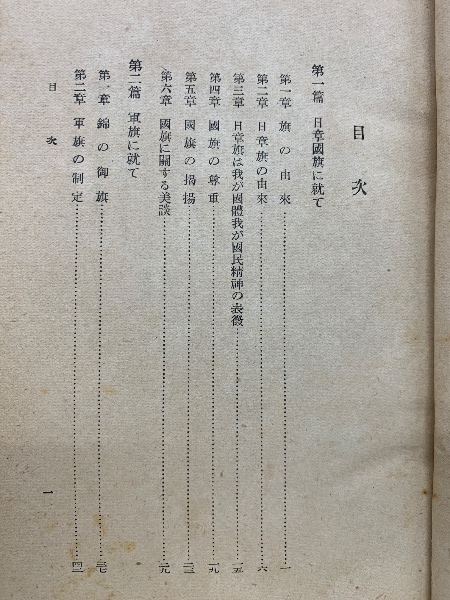 目次
第一篇 日章國旗に就て
第一章 旗の由來……一
第二章 日章旗の由來……六
第三章 日章旗は我が國體我が國民精神の表徵……一五
第四章 國旗の尊重……一九
第五章 國旗の揭揚……二三
第六章 國旗に關する美談……二九
第二篇 軍旗に就て
第一章 錦の御旗……三七
第二章 軍旗の制定……四三
目次 一